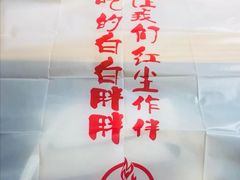 让我们红尘作伴
吃的白白胖胖